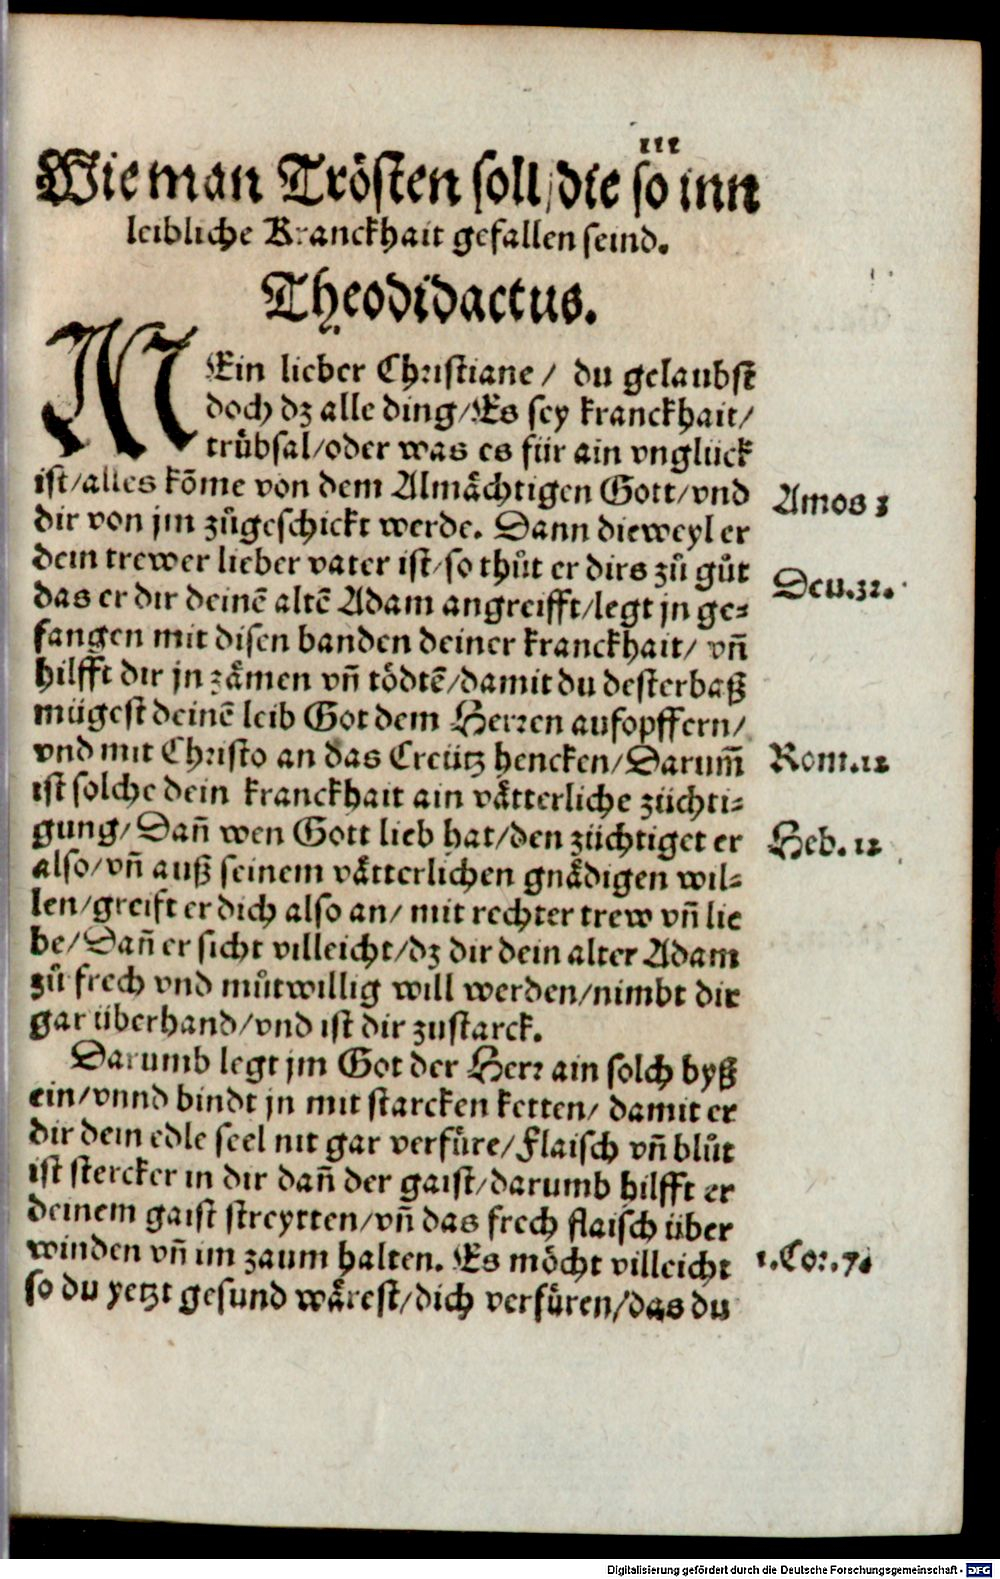 iii
Wie man Trösten soll/die so inn
leibliche Kranckhait gefallen seind.
Theodidactus.
MEin lieber Christiane/ du gelaubst
doch dz alle ding/Es sey kranckhait/
trůbsal/oder was es für ain vnglück
ist/alles kõme von dem Almåchtigen Gott/vnd
dir von jm zůgeschickt werde. Dann dieweyl er
dein trewer lieber vater ist/so thůt er dirs zů gůt
das er dir deinẽ altẽ Adam angreifft/legt jn ge⸗
fangen mit disen banden deiner kranckhait/ vñ
hilfft dir jn zåmen vñ tödtẽ/damit du desterbaß
mügest deinẽ leib Got dem Herren aufopffern/
vnd mit Christo an das Creütz hencken/Darum̃
ist solche dein kranckhait ain våtterliche züchti⸗
gung/Dañ wen Gott lieb hat/den züchtiget er
also/vñ auß seinem våtterlichen gnådigen wil⸗
len/greift er dich also an/ mit rechter trew vñ lie
be/Dañ er sicht villeicht/dz dir dein alter Adam
zů frech vnd můtwillig will werden/nimbt dir
gar überhand/vnd ist dir zustarck.
Darumb legt jm Got der Herr ain solch byß
ein/vnnd bindt jn mit starcken ketten/ damit er
dir dein edle seel nit gar verfůre/Flaisch vñ blůt
ist stercker in dir dañ der gaist/darumb hilfft er
deinem gaist streytten/vñ das frech flaisch über
winden vñ im zaum halten. Es möcht villeicht
so du yetzt gesund wårest/dich verfůren/das du
Amos 3
Deu.32.
Rom.12
Heb. 12
1.Cor.7.
Digitalisierung gefördert durch die Deutsche Forschungsgemeinschaft - DFG